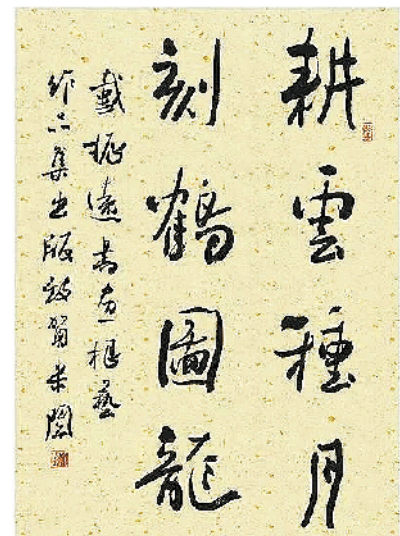 耕雲種月
刻鶴圖龍
戴振遠書画根藝
作品集出版致賀 米閙